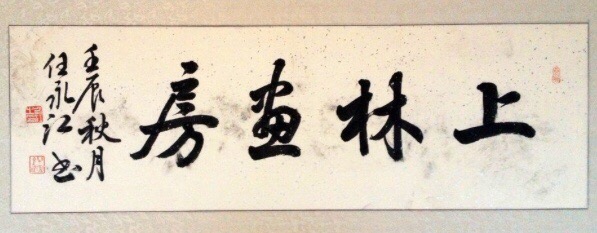 上林画房
壬辰秋月
任永江书